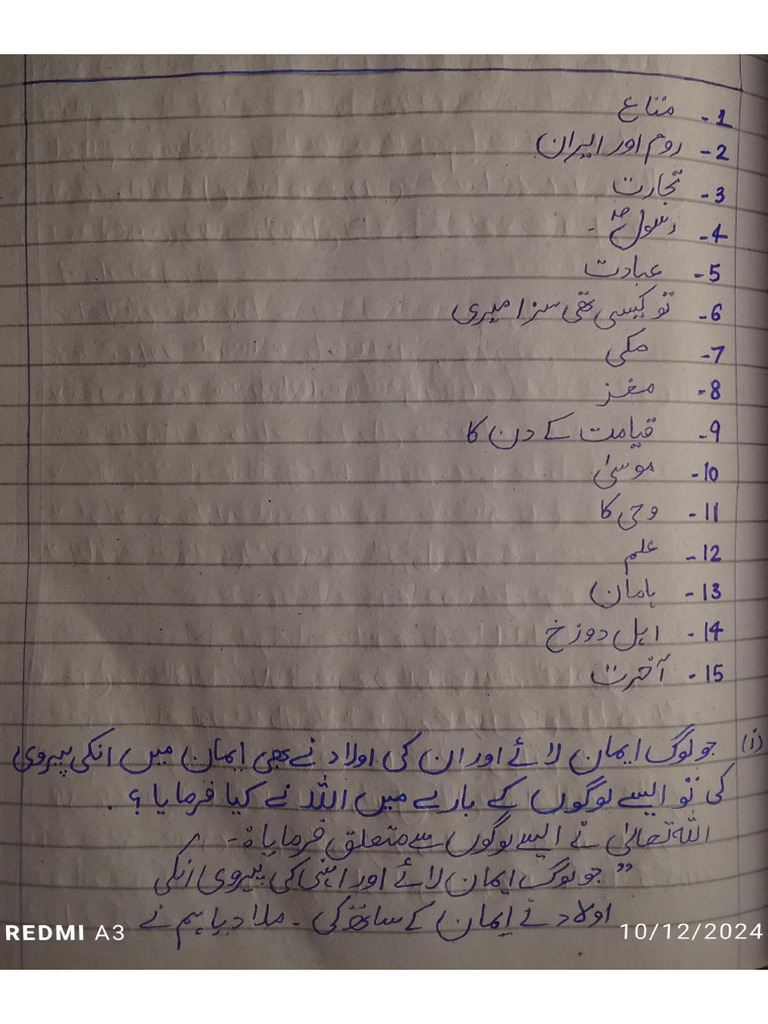 1- متاع
2- روم اور ایران
3- تجارت
4- رسولؐ -
5- عبادت
6- تو کیسی تھی سزا میری
7- مکی
8- مغز
9- قیامت کے دن کا
10- موسیٰ
11- وحی کا
12- علم
13- ہامان
14- اہل دوزخ
15- آخرت
(i) جو لوگ ایمان لائے اور ان کی اولاد نے بھی ایمان میں انکی پیروی
کی تو ایسے لوگوں کے بارے میں اللہ نے کیا فرمایا؟
اللہ تعالیٰ نے ایسے لوگوں سے متعلق فرمایا:-
"جو لوگ ایمان لائے اور کی پیروی انکی
اولاد نے ایمان کے ساتھ کی - ملا دیا ہم نے
REDMI A3 10/12/2024